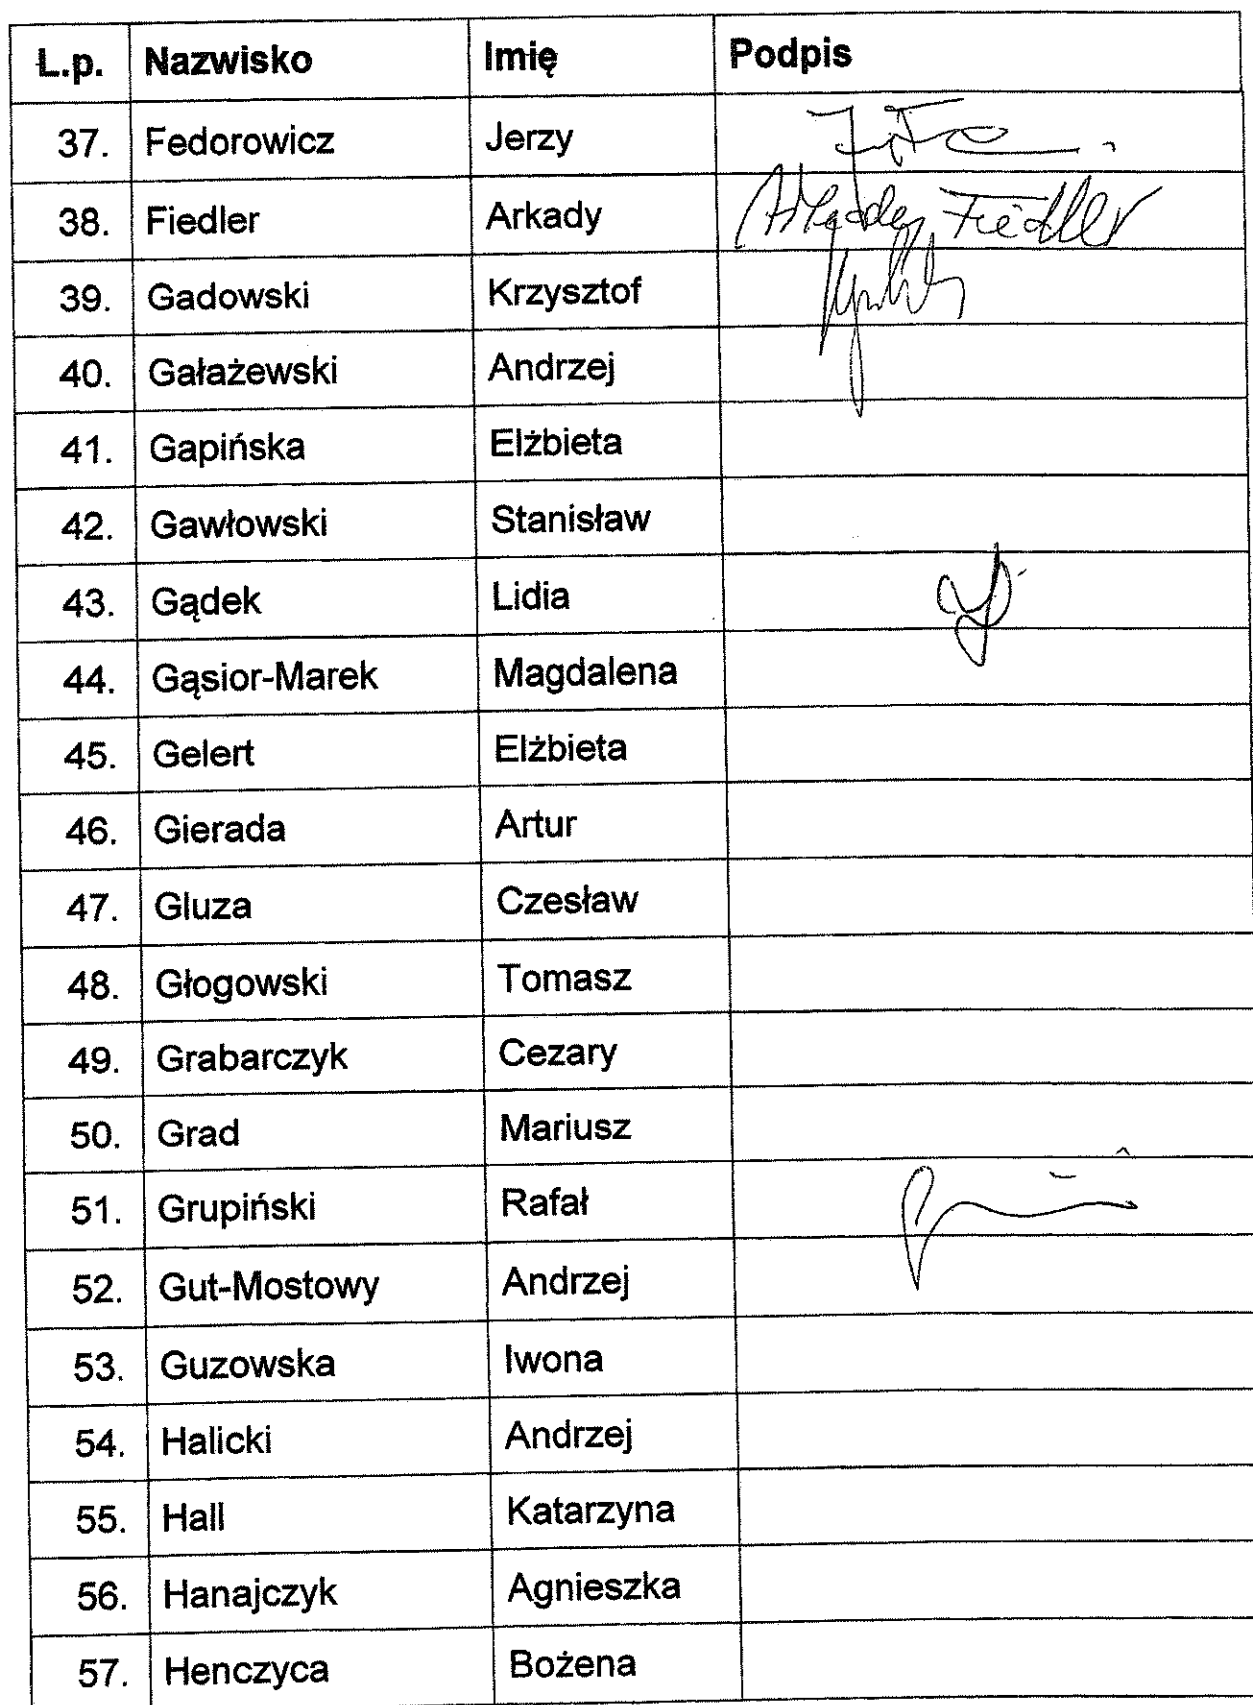 L.p. Nazwisko Imię Podpis
37. Fedorowicz Jerzy
38. Fiedler Arkady Arkady Fiedler
39. Gadowski Krzysztof
40. Gałażewski Andrzej
41. Gapińska Elżbieta
42. Gawłowski Stanisław
43. Gądek Lidia
44. Gąsior-Marek Magdalena
45. Gelert Elżbieta
46. Gierada Artur
47. Gluza Czesław
48. Głogowski Tomasz
49. Grabarczyk Cezary
50. Grad Mariusz
51. Grupiński Rafał
52. Gut-Mostowy Andrzej
53. Guzowska Iwona
54. Halicki Andrzej
55. Hall Katarzyna
56. Hanajczyk Agnieszka
57. Henczyca Bożena